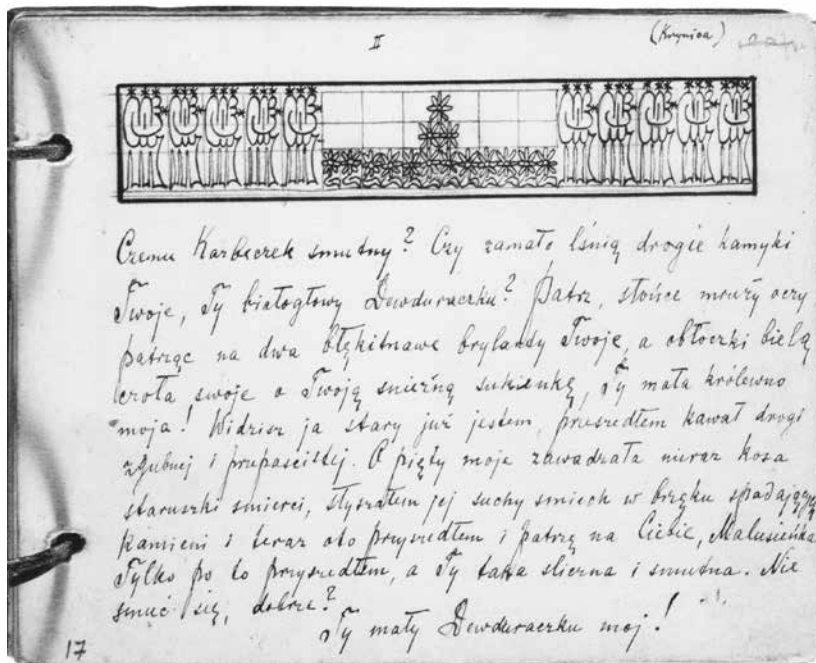 II
(Krynica)
Czemu Karbeczek smutny? Czy zamało lśnią drogie kamyki
Twoje, Ty białogłowy Dewduraczku? Patrz, słońce mruży oczy
patrząc na dwa błękitnawe brylanty Twoje, a obłoczki bielą
czoła swoje o Twoją snieżną sukienkę, Ty mała królewno
moja! Widzisz ja stary już jestem, przeszedłem kawał drogi
zgubnej i przepaścistej. O pięty moje zawadzała nieraz kosa
staruszki smierci, słyszałem jej suchy smiech w brzęku spadających
kamieni i teraz oto przyszedłem i patrzę na Ciebie, Malusieńka
Tylko po to przyszedłem, a Ty taka sliczna i smutna. Nie
smuć się, dobrze?
Ty mały Dewduraczku moj!
17